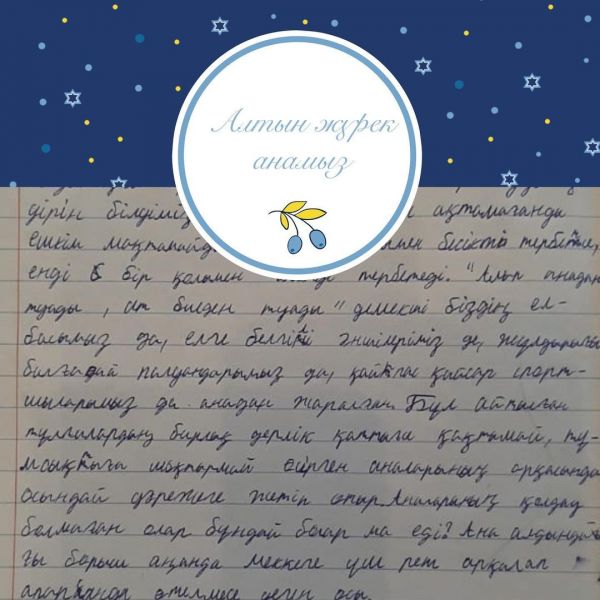 Алтын жүрек
анамыз
дірін білдіміз ақтамағанда
ешкім мақтамайды бесікті тербетсе,
енді бір қолымен тербетеді. "Алып анадан
туады, ат биеден туады" демекші біздің ел-
басымыз да, елге белгілі әншілеріміз де, жұлдызы
балғадай палуандарымыз да, қайтпас қайсар спорт-
шыларымыз да анадан жаралған. Бұл айтылған
тұлғалардың барлық дерлік қаттыға қақтымай, тұ-
мсықтыға шоқтырмай өсірген аналарының арқасында
осындай дәрежеге жетіп отыр. Аналарының қолдау
болмаған олар бұндай болар ма еді? Ана алдындағы
ғы борыш аңанда меккеге үш рет арқалап
апарғанда өтелмесе деген осы.